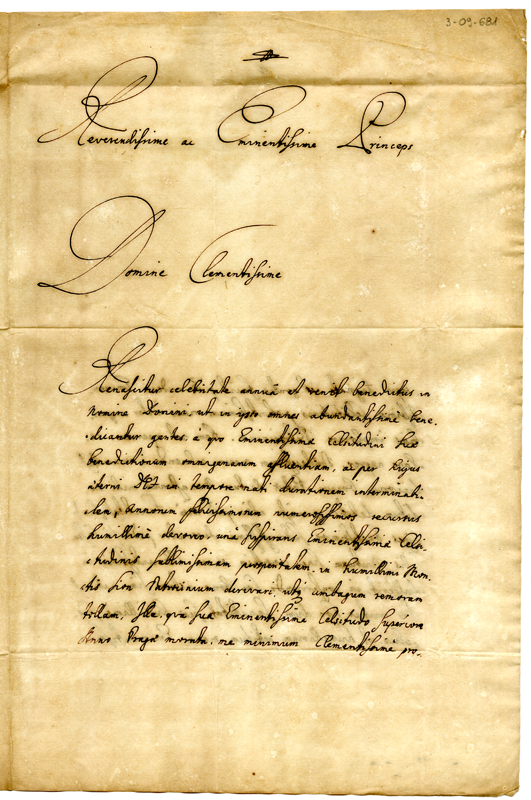 3-09-681
Reverendissime ac Eminentissime Princeps
Domine Clementissime
Renascitur celebritate annuâ et venit benedictus in
Nomine Domini, ut in ipso omnes abundantissimè bene-
dicantur gentes, à quo Eminentissimæ Celsitudini Suæ
benedictionum omnigenarum affluentiam, ac per Hujus
æterni in tempore nati durationem interminabi-
lem, Annorum felicissimorum numerosissimos recursus
humillimè devoveo, unà suspirans Eminentissimæ Celsi-
tudinis sublimissimam prosperitatem, in humillimi Mon-
tis Sion Patrocinium derivari, utque ambagum remoram
tollam, Illa, quâ Sua Eminentissima Celsitudo superiore
Anno Pragæ morata, me minimum Clementissimè pro-